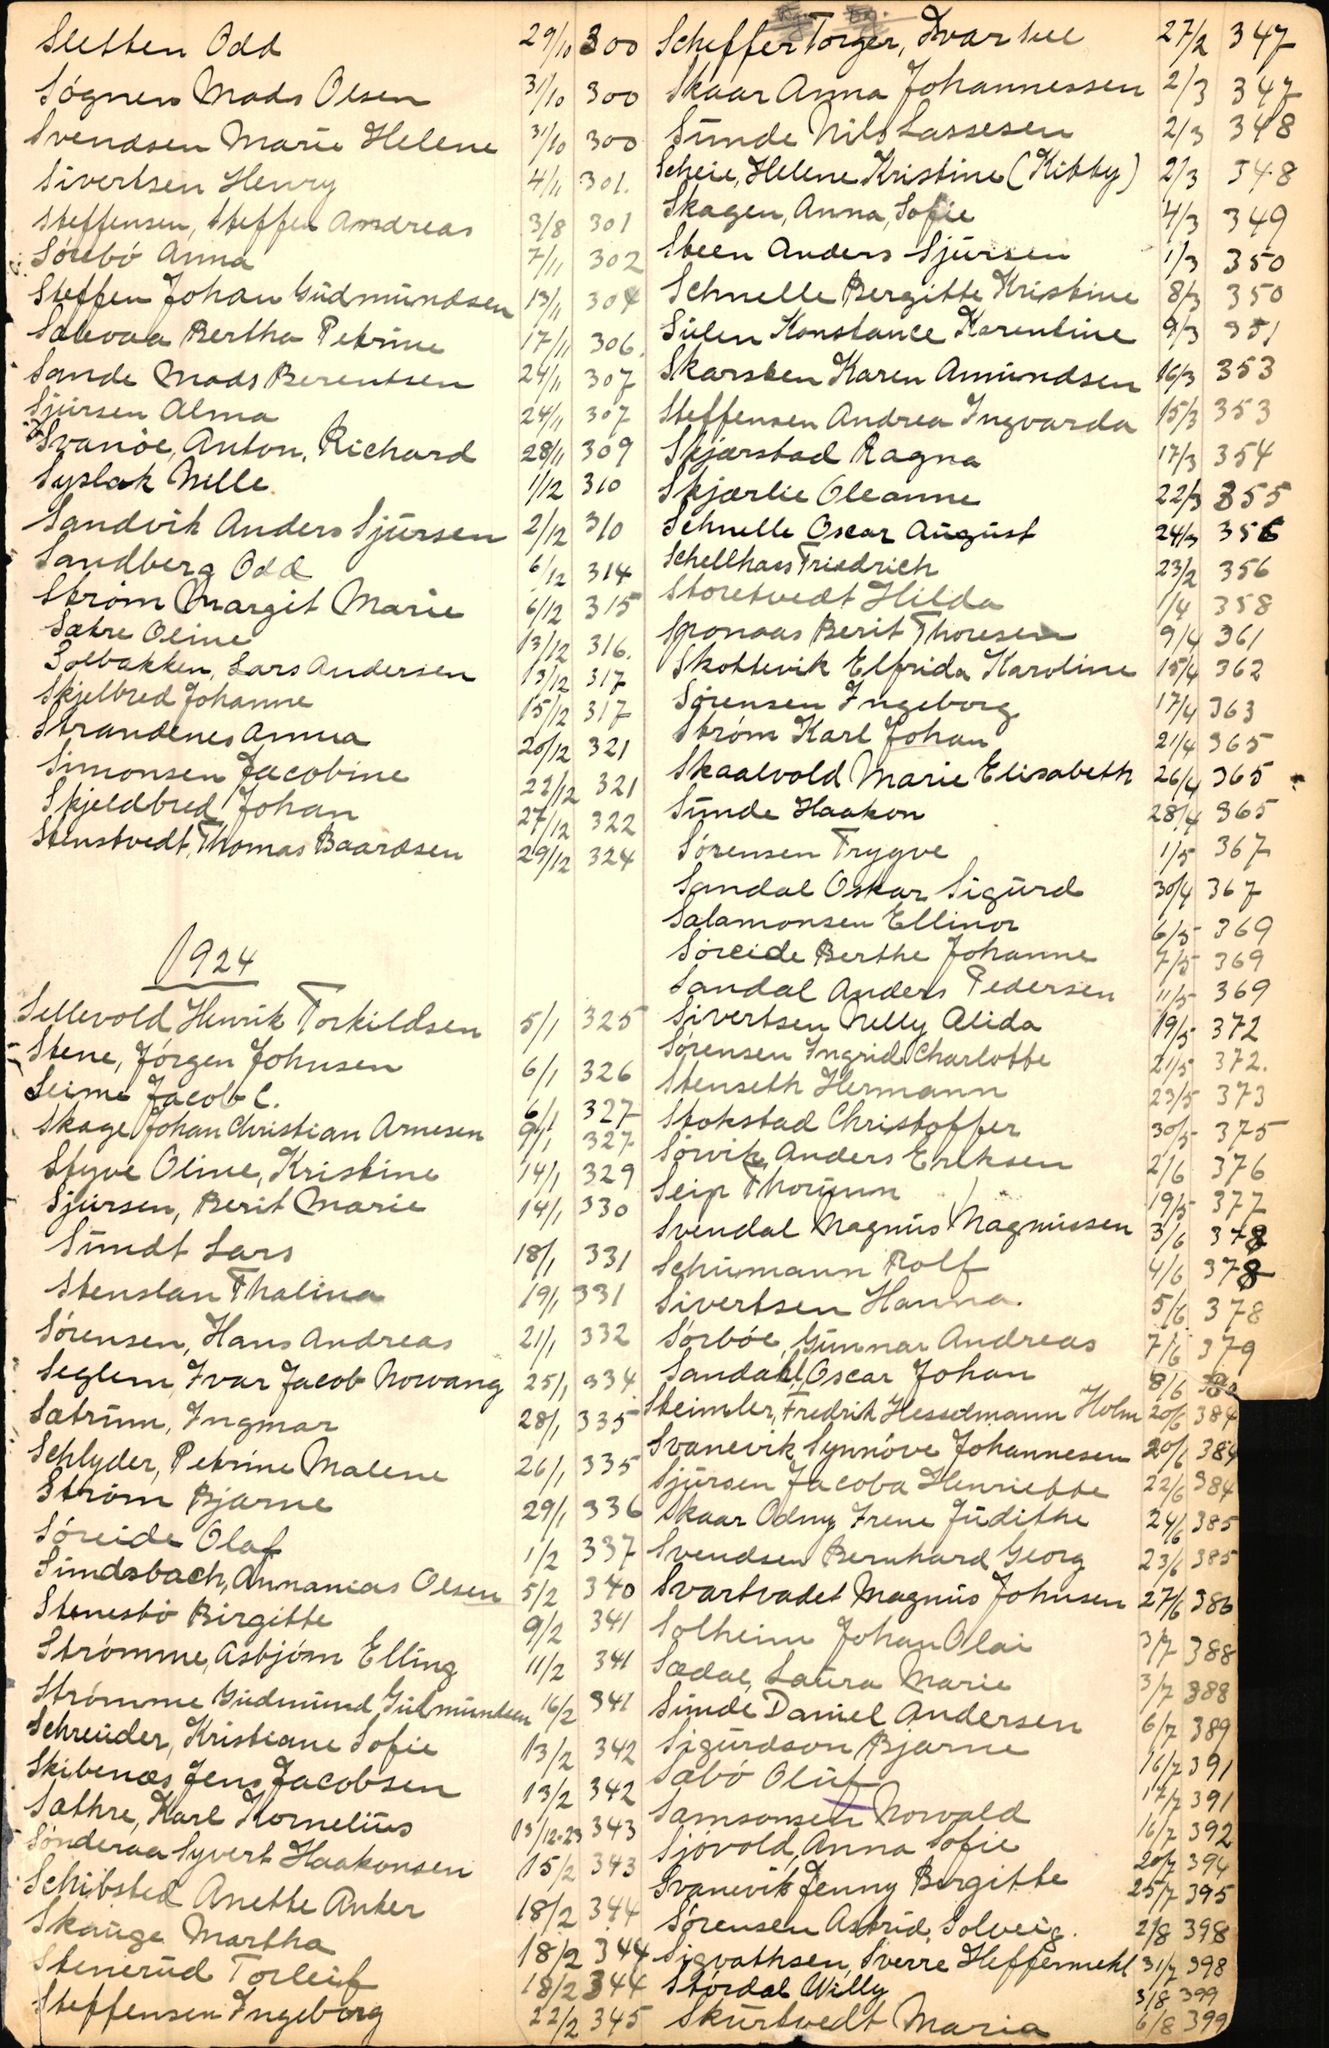 Sletten Odd 29/10 300
Sógnen Mads Olsen 31/10 300
Svendsen Marie Helene 31/10 300
Sivertsen Henry 4/11 301.
Steffensen, Steffen Andreas 3/8 301
Sórebó Anna 7/11 302
Steffen Johan Gudmundsen 13/11 304
Salevaa Bertha Petrine 17/11 306.
Sande Mads Berentsen 24/11 307
Sjursen Alma 24/11 307
Svanöe, Anton, Richard 28/11 309
Syslak Nille 1/12 310
Sandvik Anders Sjursen 2/12 310
Sandberg Odd 6/12 314
Ström Margit Marie 6/12 315
Sætre Oline 13/12 316.
Solbakken, Lars Andersen 13/12 317
Skjelbred Johanne 15/12 317
Strandenes Anna 20/12 321
Simonsen Jacobine 22/12 321
Skjeldbred Johan 27/12 322
Stenstvedt, Thomas Baardsen 29/12 324
1924
Sellevold Henrik Torkildsen 5/1 325
Stene, Jórgen Johnsen 6/1 326
Seime Jacob C. 6/1 327
Skage Johan Christian Arnesen 9/1 327
Styve Oline, Kristine 14/1 329
Sjursen, Berit Marie 14/1 330
Sundt Lars 18/1 331
Stenslan Thalina 19/1 331
Sórensen, Hans Andreas 21/1 332
Seglem, Ivar Jacob Norvang 25/1 334
Sætrum, Ingmar 28/1 335
Schlyder, Petrine Malene 26/1 335
Ström Bjarne 29/1 336
Sóreide Olaf 1/2 337
Sundsbach, Annanias Olsen 5/2 340
Stenesbó Birgitte 9/2 341
Strómme, Asbjórn Elling 11/2 341
Strómme Gudmund Gulmundsen 16/2 341
Schreuder, Kristiane Sofie 13/2 342
Skibenæs Jens Jacobsen 13/2 342
Sæthre, Karl Kornelius 13/12.23 343
Sónderaa Syvert Haakonsen 15/2 343
Schibsted Anette Anker 18/2 344
Skauge Martha 18/2 344
Stenerud Torleif 18/2 344
Steffensen Ingeborg 22/2 345
Scheffer Torger, Ivar 27/2 347
Skaar Anna Johannessen 2/3 347
Sunde Nils Lassesen 2/3 348
Scheie, Helene Kristine (Kitty) 2/3 348
Skagen, Anna, Sofie 4/3 349
Steen Anders Sjursen 1/3 350
Schnelle Bergitte Kristine 8/3 350
Sulen Konstance Karentine 9/3 351
Skarsten Karen Amundsen 16/3 353
Steffensen Andrea Ingvarda 15/3 353
Skjærstad Ragna 17/3 354
Skjærlie Oleanne 22/3 355
Schnelle Oscar August 24/3 356
Schellhass Friedrich 23/2 356
Storetvedt Hilda 1/4 358
Sponaas Berit Thoresen 9/4 361
Skottevik Elfrida Karoline 15/4 362
Sørensen Ingeborg 17/4 363
Strøm Karl Johan 21/4 365
Skaalvold Marie Elisabeth 26/4 365
Sunde Haakon 28/4 365
Sórensen Trygve 1/5 367
Sandal Oskar Sigurd 30/4 367
Salamonsen Ellinor 6/5 369
Sóreide Berthe Johanne 7/5 369
Sandal Anders Pedersen 11/5 369
Sivertsen Nelly Alida 19/5 372
Sórensen Ingrid Charlotte 21/5 372.
Stenseth Hermann 23/5 373
Stokstad Christoffer 30/5 375
Sórvik, Anders Eriksen 2/6 376
Seip Thorunn 19/5 377
Svendal Magnus Magnussen 3/6 378
Schumann Rolf 4/6 378
Sivertsen Hanna. 5/6 378
Sórbóe, Gunnar Andreas 7/6 379
Sandahl, Oscar Johan 8/6 380
Steimler, Fredrik Hesselmann Holm 20/6 384
Svanevik, Synnóve Johannesen 20/6 384
Sjursen Jacoba Henriette 22/6 384
Skaar Odny Irene Judithe 24/6 385
Svendsen Bernhard Georg 23/6 385
Svartvadet Magnus Johnsen 27/6 386
Solheim Johan Olai 3/7 388
Sædal, Laura Marie 3/7 388
Sunde Daniel Andersen 6/7 389
Sigurdson Bjarne 16/7 391
Sæbó Oluf 17/7 391
Samsonsen Norvald 16/7 392
Sjóvold, Anna Sofie 20/7 394
Svanevik Jenny Birgitte 25/7 395
Sórensen Astrid, Solveig. 2/8 398
Sigvathsen, Sverre Heffermehl 31/7 398
Stórdal Willy 3/8 399
Skurtvedt Maria 6/8 399